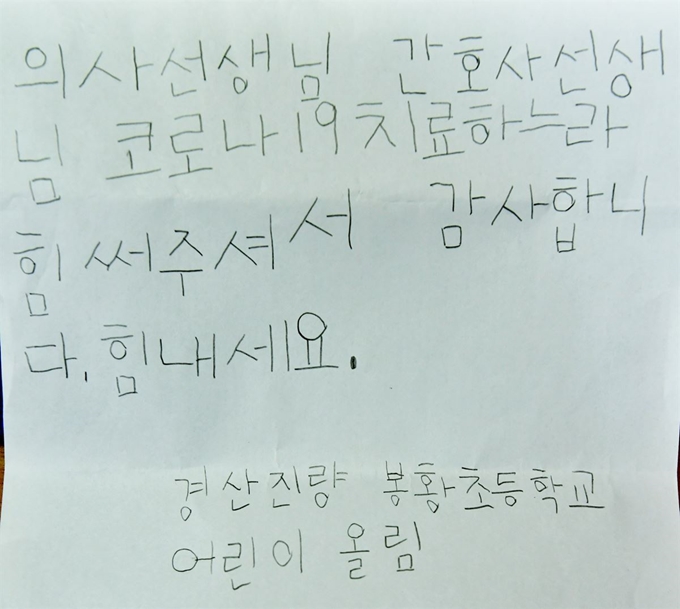 의사선생님 간호사선생
님 코로나19치료하느라
힘써주셔서 감사합니
다. 힘내세요.
경산진량 봉황초등학교
어린이 올림